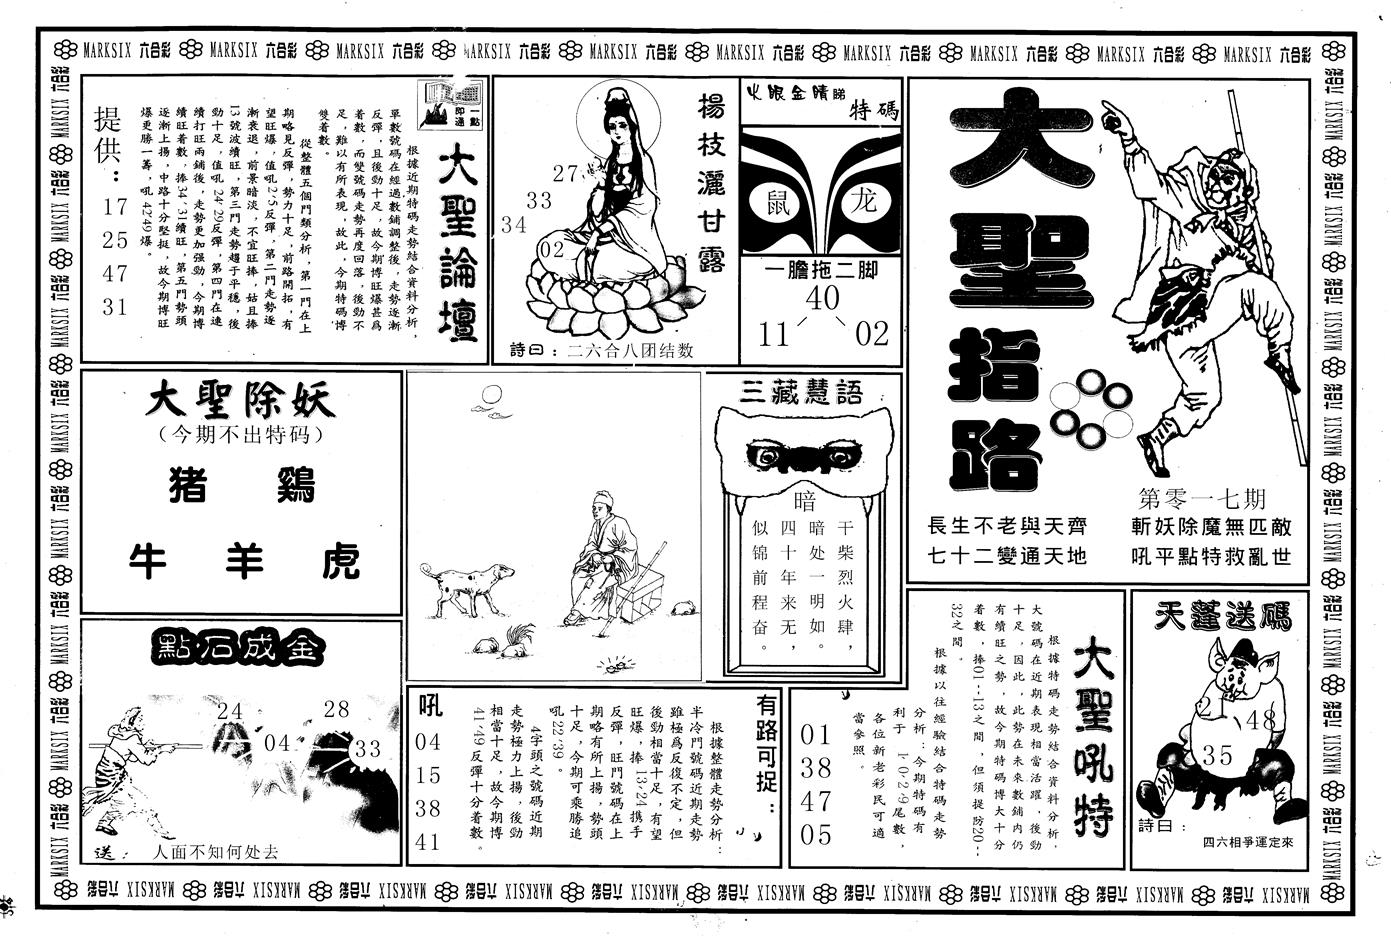 MARKSIX 六合彩 MARKSIX 六合彩 MARKSIX 六合彩 MARKSIX 六合彩 MARKSIX 六合彩 MARKSIX 六合彩 MARKSIX 六合彩 MARKSIX 六合彩 MARKSIX 六合彩 MARKSIX 六合彩
大聖指路
第零一七期
長生不老與天齊
七十二變通天地
斬妖除魔無匹敵
吼平點特救亂世
火眼金睛睇
特碼
鼠
龙
一膽拖二脚
40
11
02
楊枝灑甘露
27
33
34
02
詩曰：二六合八团结数
一點即通
大聖論壇
根據近期特碼走勢結合資料分析，
單數號碼在經過數鋪調整後，走勢逐漸
反彈，且後勁十足，故今期博旺爆甚爲
着數，而雙號碼走勢再度回落，後勁不
足，難以有所表現，故此，今期特碼博
雙着數。
從整體五個門類分析，第一門在上
期略見反彈，勢力十足，前路開拓，有
望旺爆，值吼2·5反彈，第二門走勢逐
漸衰退，前景暗淡，不宜旺捧，姑且捧
13號波續旺，第三門走勢趨于平穩，後
勁十足，值吼24·29反彈，第四門在連
續打旺兩鋪後，走勢更加强勁，今期博
續旺着數，捧34·31續旺，第五門勢頭
逐漸上揚，中路十分堅挺，故今期博旺
爆更勝一籌，吼42·49爆。
提供：
17
25
47
31
大聖除妖
（今期不出特码）
猪 鷄
牛 羊 虎
三藏慧語
暗
干柴烈火肆，
暗处一明如。
四十年来无，
似锦前程奋。
點石成金
24
28
04
33
送： 人面不知何处去
有路可捉：
根據整體走勢分析：
半冷門號碼近期走勢
雖極爲反復不定，但
後勁相當十足，有望
旺爆，捧13·24携手
反彈，旺門號碼在上
期略有所上揚，勢頭
十足，今期可乘勝追
吼22·39。
4字頭之號碼近期
走勢極力上揚，後勁
相當十足，故今期博
41·49反彈十分着數。
吼
04
15
38
41
大聖吼特
根據特碼走勢結合資料分析，
大號碼在近期表現相當活躍，後勁
十足，因此，此勢在未來數鋪内仍
有續旺之勢，故今期特碼博大十分
着數，捧01--13之間，但須提防20--
32之間。
根據以往經驗結合特碼走勢
分析：今期特碼有
利于 1·0·2·9尾數，
各位新老彩民可適
當參照。
01
38
47
05
天蓬送碼
2
48
35
詩曰：
四六相爭運定來